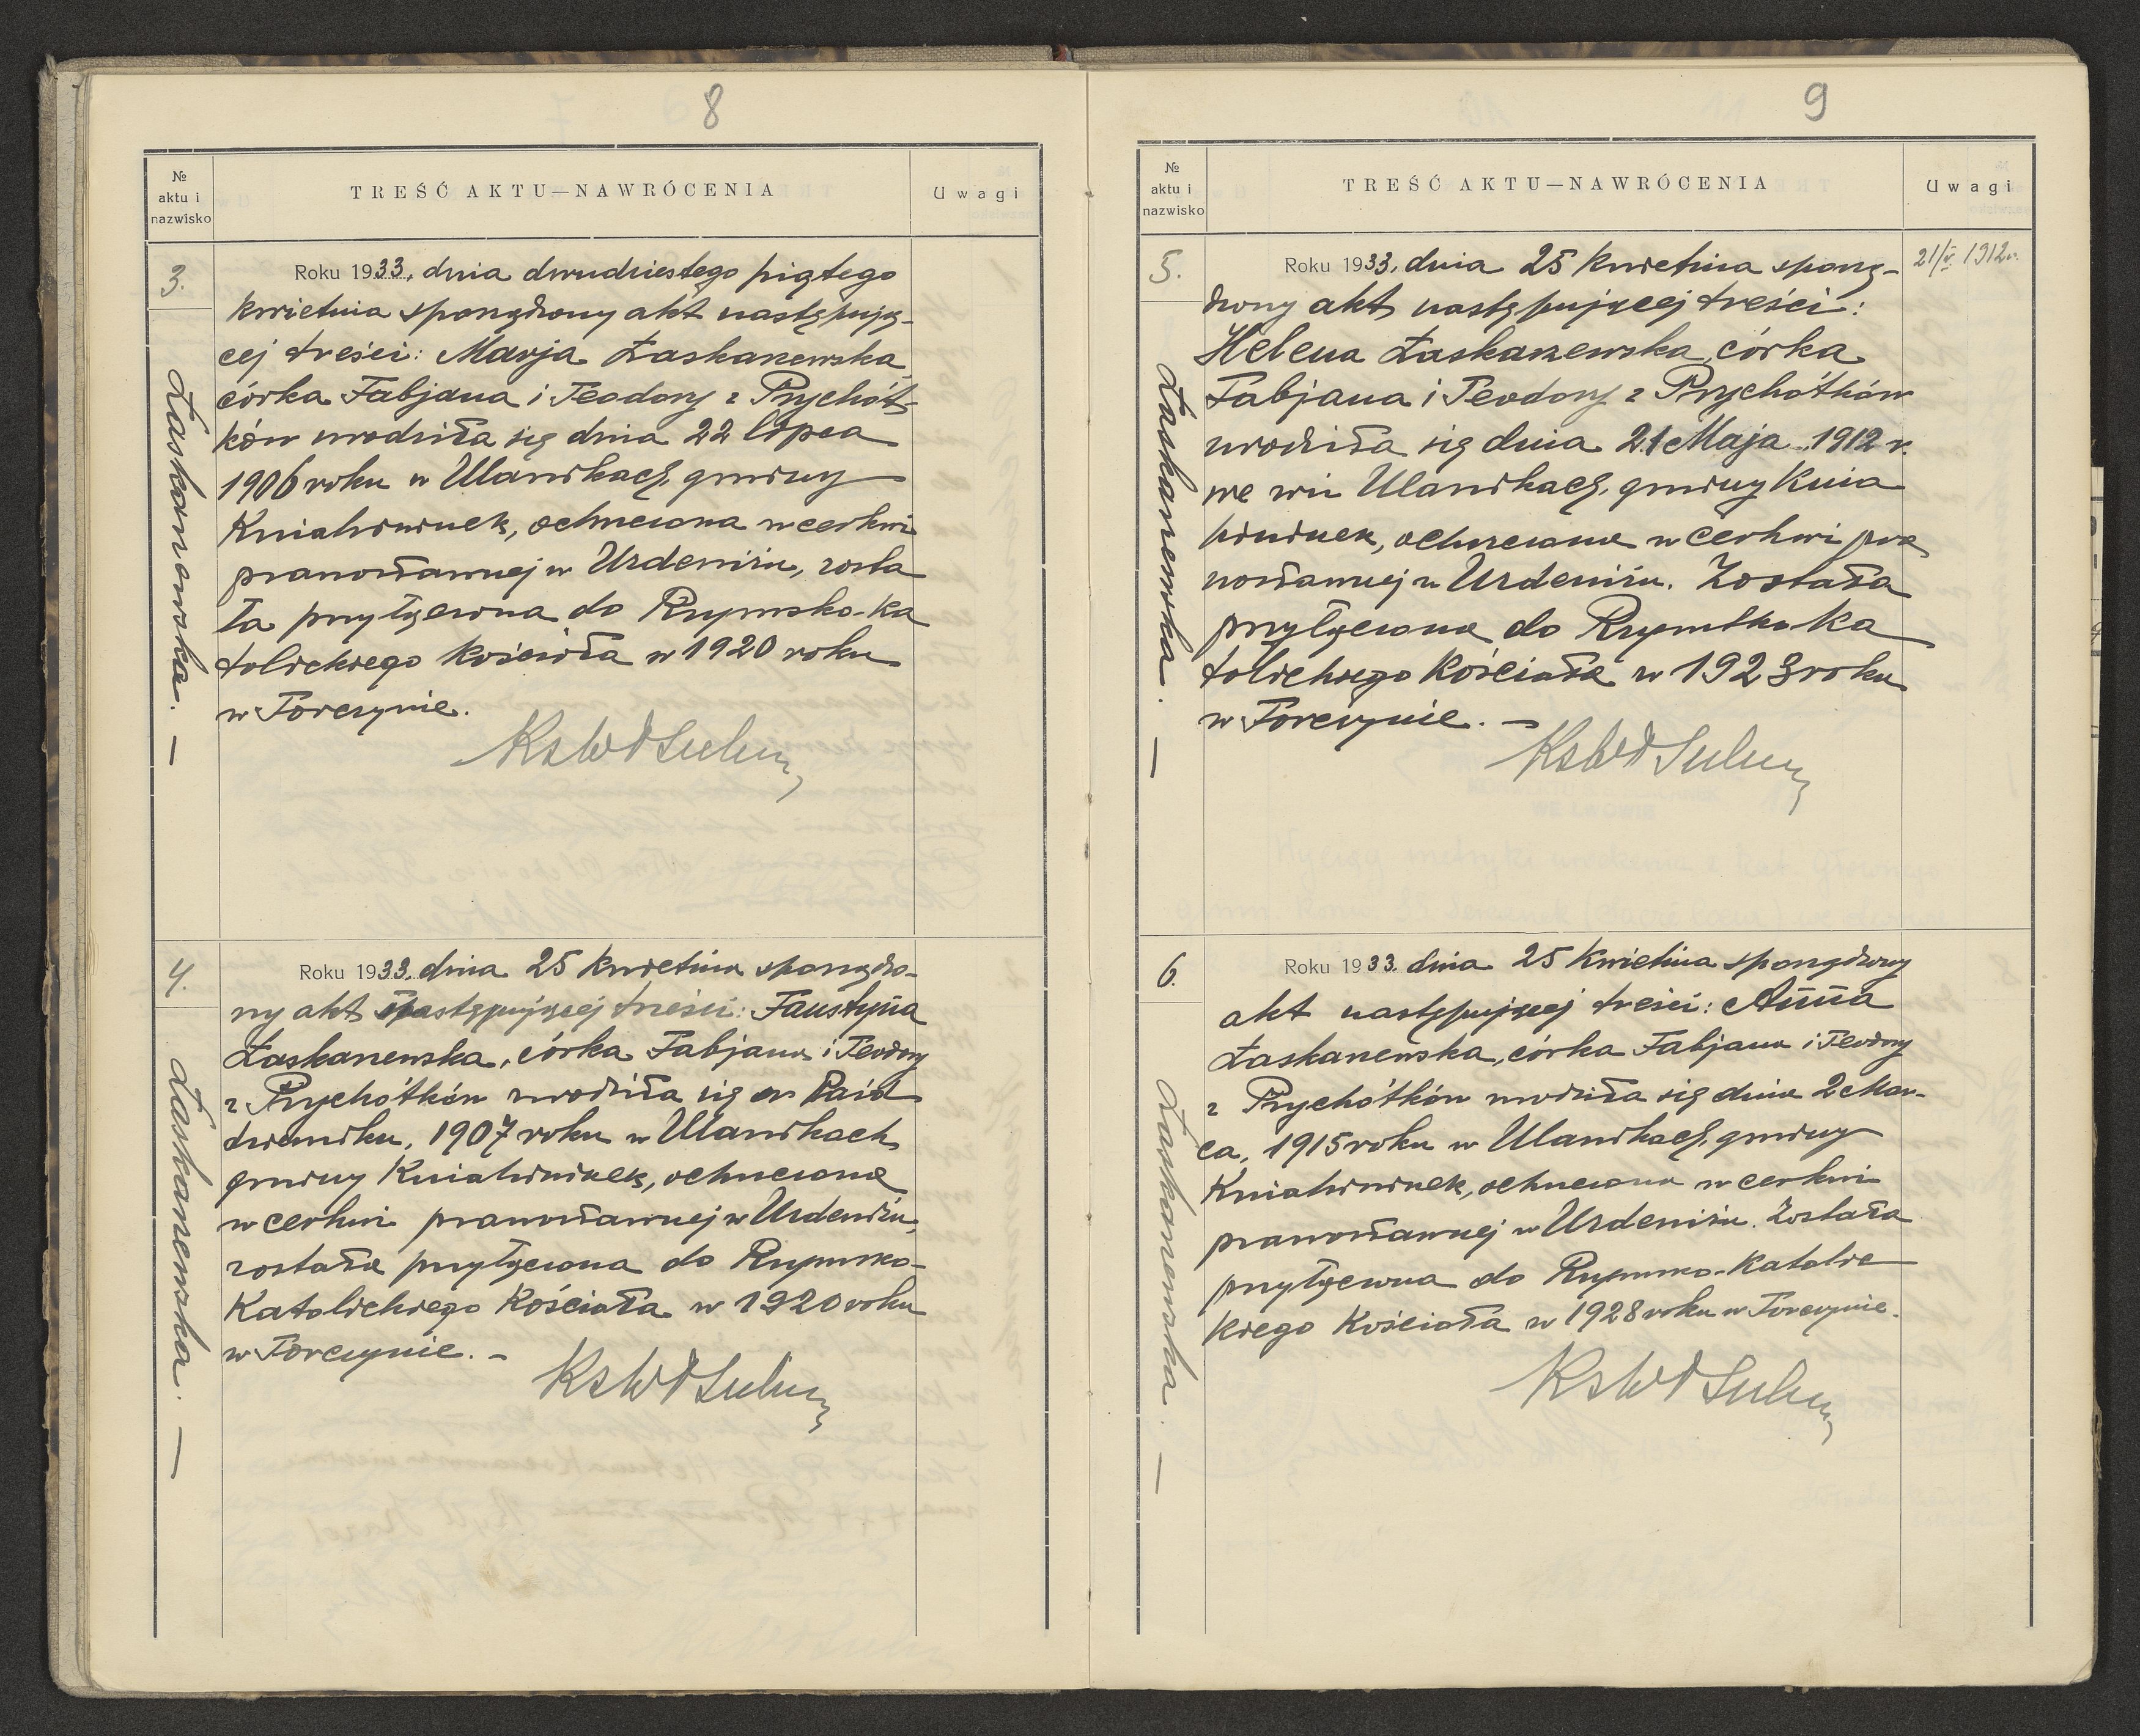 8
№ aktu i nazwisko
TREŚĆ AKTU—NAWRÓCENIA
Uwagi
3.
Łaskarzewska. —
Roku 1933, dnia dwudziestego piątego
kwietnia sporządzony akt następują-
cej treści: Marja Łaskarzewska,
córka Fabjana i Teodory z Przychód-
ków urodziła się dnia 22 lipca
1906 roku w Ulanikach, gminy
Kniahininek, ochrzczona w cerkwi
prawosławnej w Usdeniżu, zosta
ła przyłączona do Rzymsko-Ka
tolickiego Kościoła w 1920 roku
w Torczynie.
Ks Wł
4.
Łaskarzewska. —
Roku 1933. dnia 25 kwietnia sporządzo-
ny akt następującej treści: Faustyna
Łaskarzewska, córka Fabjana i Teodory
z Przychódków urodziła się w Paźd
dzierniku, 1907 roku w Ulanikach
gminy Kniahininek, ochrzczona
w cerkwi prawosławnej w Usdeniżu,
została przyłączona do Rzymsko-
Katolickiego Kościoła w 1920 roku
w Torczynie. -
Ks Wł
9
№ aktu i nazwisko
TREŚĆ AKTU—NAWRÓCENIA
Uwagi
5.
Łaskarzewska. —
Roku 1933, dnia 25 kwietnia sporzą-
21/V 1912r.
dzony akt następującej treści:
Helena Łaskarzewska, córka
Fabjana i Teodory z Przychódków
urodziła się dnia 21 Maja 1912 r.
we wsi Ulanikach, gminy Knia
hininek, ochrzczona w cerkwi pra
wosławnej w Usdeniżu. Została
przyłączona do Rzymsko Ka
tolickiego Kościoła w 1923 roku
w Torczynie. -
Ks Wł
6.
Łaskarzewska. —
Roku 1933. dnia 25 Kwietnia sporządzony
akt następującej treści: Anna
Łaskarzewska, córka Fabjana i Teodory
z Przychódków urodziła się dnia 2 Mar-
ca, 1915 roku w Ulanikach, gminy
Kniahininek, ochrzczona w cerkwi
prawosławnej w Usdeniżu. Została
przyłączona do Rzymsko-Katolic
kiego Kościoła w 1928 roku w Torczynie.
Ks Wł